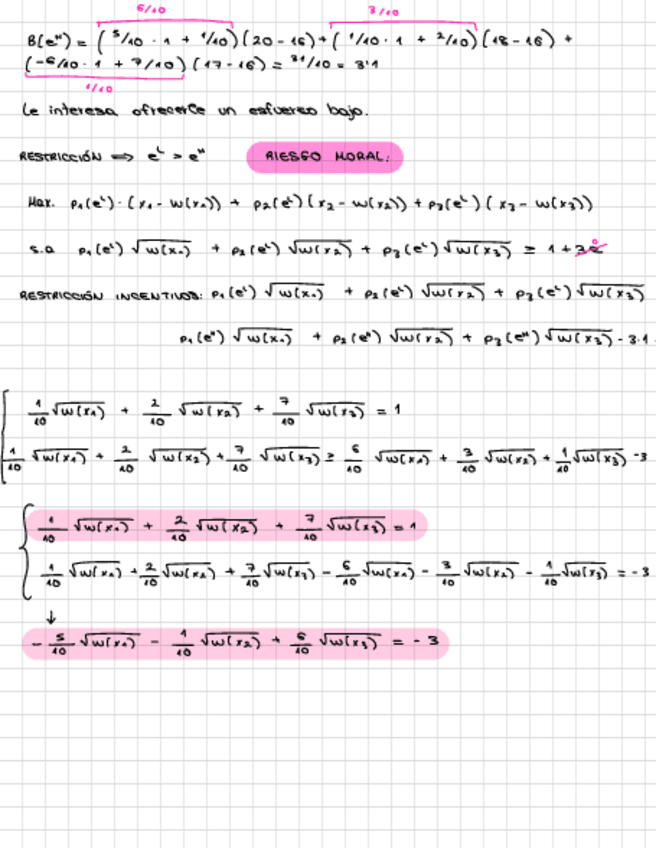 6/10 3/10
B(eᴴ) = (5/10 · 1 + 1/10)(20 - 16) + (1/10 · 1 + 2/10)(18 - 16) +
(-6/10 · 1 + 7/10)(17 - 16) = 31/10 = 3'1
1/10
Le interesa ofrecerle un esfuerzo bajo.
RESTRICCIÓN ⟹ eᴸ > eᴴ RIESGO MORAL:
Max. p₁(eᴸ)·(x₁ - w(x₁)) + p₂(eᴸ)(x₂ - w(x₂)) + p₃(eᴸ)(x₃ - w(x₃))
s.a p₁(eᴸ) √w(x₁) + p₂(eᴸ) √w(x₂) + p₃(eᴸ) √w(x₃) ≥ 1 + 3e 0
RESTRICCIÓN INCENTIVOS: p₁(eᴸ) √w(x₁) + p₂(eᴸ) √w(x₂) + p₃(eᴸ) √w(x₃)
p₁(eᴴ) √w(x₁) + p₂(eᴴ) √w(x₂) + p₃(eᴴ) √w(x₃) - 3·1
1/10 √w(x₁) + 2/10 √w(x₂) + 7/10 √w(x₃) = 1
1/10 √w(x₁) + 2/10 √w(x₂) + 7/10 √w(x₃) ≥ 6/10 √w(x₁) + 3/10 √w(x₂) + 1/10 √w(x₃) -3
1/10 √w(x₁) + 2/10 √w(x₂) + 7/10 √w(x₃) = 1
1/10 √w(x₁) + 2/10 √w(x₂) + 7/10 √w(x₃) - 6/10 √w(x₁) - 3/10 √w(x₂) - 1/10 √w(x₃) = -3
↓
- 5/10 √w(x₁) - 1/10 √w(x₂) + 6/10 √w(x₃) = - 3